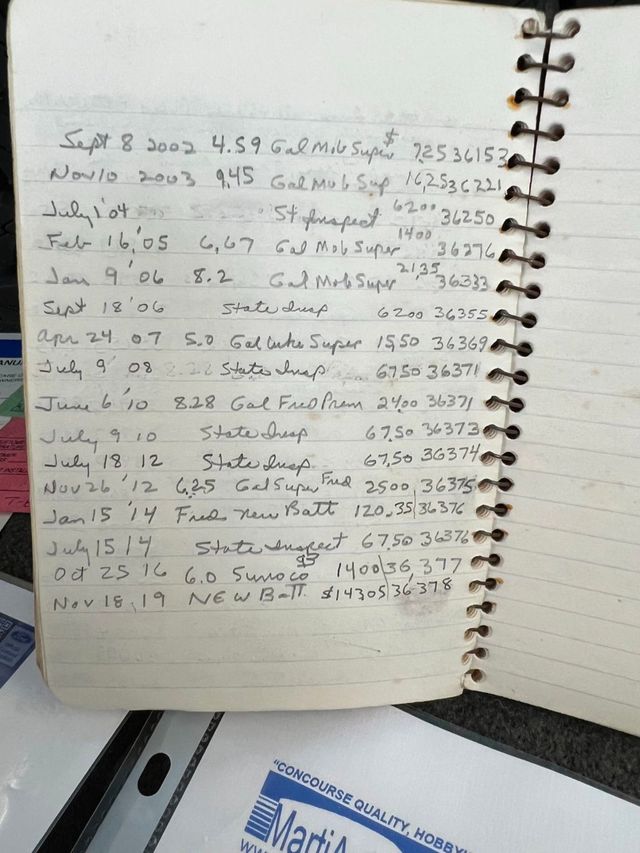 Sept 8 2002 4.59 Gal Mob Super $ 7,25 36153
Nov 10 2003 9,45 Gal Mob Sup 16,25 36221
July 1 '04 St Inspect 6200 36250
Feb 16, '05 6,67 Gal Mob Super 1400 36276
Jan 9 '06 8.2 Gal Mob Super 21,35 36333
Sept 18 '06 State Insp 6200 36355
Apr 24 07 5.0 Gal Super 15,50 36369
July 9' 08 State Insp 67,50 36371
June 6 '10 8.28 Gal Fred Prem 24,00 36371
July 9 10 State Insp 67,50 36373
July 18 12 State Insp 67,50 36374
Nov 26 '12 6,25 Gal Super Fred 2500 36375
Jan 15 '14 Freds new Batt 120.35 36376
July 15 14 State Inspect 67,50 36376
Oct 25 16 6.0 Sunoco 93 1400 36,377
Nov 18, 19 NEW Batt. $14305 36378
"CONCOURSE QUALITY, HOBBY
Marti
WW